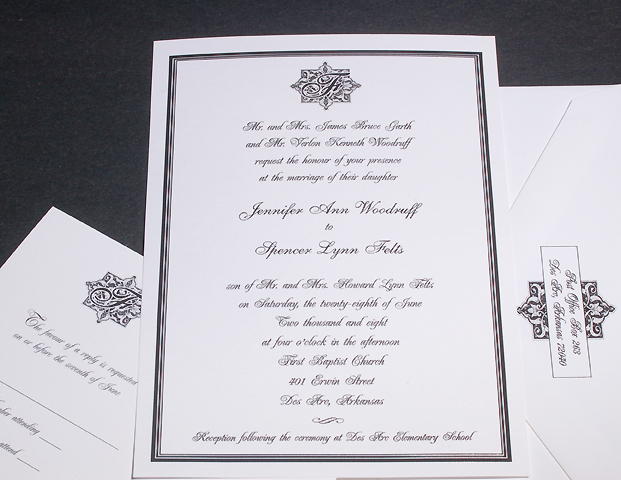 F
Mr. and Mrs. James Bruce Garth
and Mr. Verlon Kenneth Woodruff
request the honour of your presence
at the marriage of their daughter
Jennifer Ann Woodruff
to
Spencer Lynn Felts
son of Mr. and Mrs. Howard Lynn Felts
on Saturday, the twenty-eighth of June
Two thousand and eight
at four o'clock in the afternoon
First Baptist Church
401 Erwin Street
Des Arc, Arkansas
Reception following the ceremony at Des Arc Elementary School
The favour of a reply is requested
on or before the seventh of
June
attending
attend
Post Office Box 263
Des Arc, Arkansas 72040